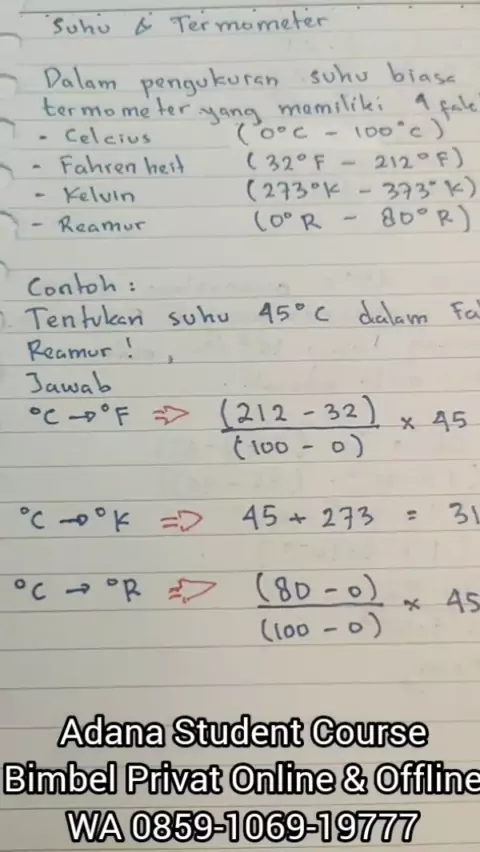 Suhu & Termometer
Dalam pengukuran suhu biasa
termometer yang memiliki 4
- Celcius (0°C - 100°C)
- Fahrenheit (32°F - 212°F)
- Kelvin (273°K - 373°K)
- Reamur (0°R - 80°R)
Contoh :
Tentukan suhu 45°C dalam Fa
Reamur !
Jawab
°C → °F ⇒ (212 - 32) / (100 - 0) × 45
°C → °K ⇒ 45 + 273 = 31
°C → °R ⇒ (80 - 0) / (100 - 0) × 45
Adana Student Course
Bimbel Privat Online & Offline
WA 0859-1069-19777